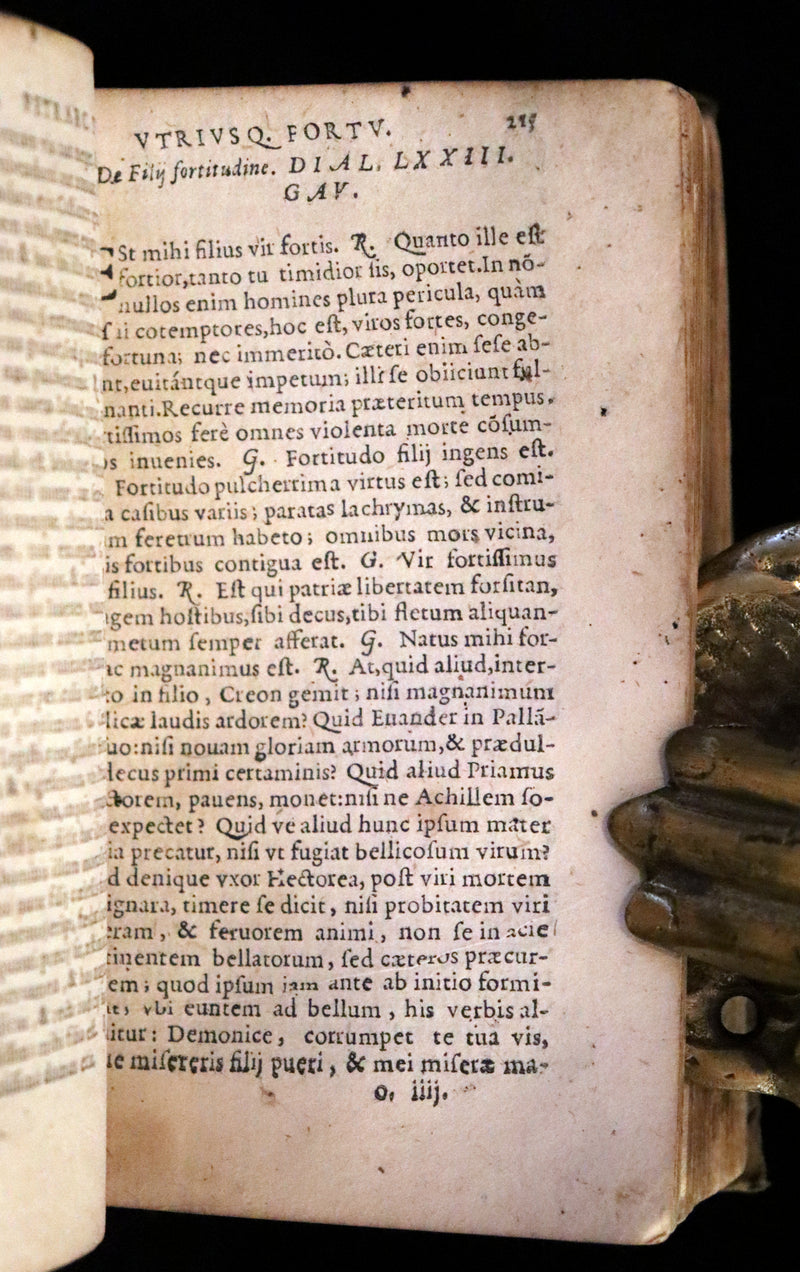 VTRIVSQ. FORTV. 215
De Filij fortitudine. DIAL. LXXIII.
GAV.
St mihi filius vir fortis. R. Quanto ille eſt
fortior,tanto tu timidior ſis, oportet.In nō-
nullos enim homines plura pericula, quàm
cōtemptores,hoc eſt, viros fortes, conge-
fortuna; nec immeritò. Cæteri enim ſeſe ab-
nt,euitántque impetum; illi ſe obiiciunt ful-
nanti.Recurre memoria præteritum tempus,
tiſſimos ferè omnes violenta morte cōſum-
os inuenies. G. Fortitudo filij ingens eſt.
Fortitudo pulcherrima virtus eſt; ſed comi-
a caſibus variis; paratas lachrymas, & inſtru-
m feretrum habeto; omnibus mors vicina,
is fortibus contigua eſt. G. Vir fortiſſimus
filius. R. Eſt qui patriæ libertatem forſitan,
gem hoſtibus,ſibi decus,tibi fletum aliquan-
metum ſemper afferat. G. Natus mihi for-
ac magnanimus eſt. R. At,quid aliud,inter-
to in filio, Creon gemit; niſi magnanimum
licæ laudis ardorem? Quid Euander in Pallā-
uo:niſi nouam gloriam armorum,& prædul-
decus primi certaminis? Quid aliud Priamus
ctorem, pauens, monet:niſi ne Achillem ſo-
expectet? Quid ve aliud hunc ipſum mater
ia precatur, niſi vt fugiat bellicoſum virum?
d denique vxor Hectorea, poſt viri mortem
ignara, timere ſe dicit, niſi probitatem viri
eram, & feruorem animi, non ſe in acie
tinentem bellatorum, ſed cæteros præcur-
em; quod ipſum iam ante ab initio formi-
it, vbi euntem ad bellum, his verbis al-
itur: Demonice, corrumpet te tua vis,
ie miſereris filij pueri, & mei miſeræ ma-
o, iiij.